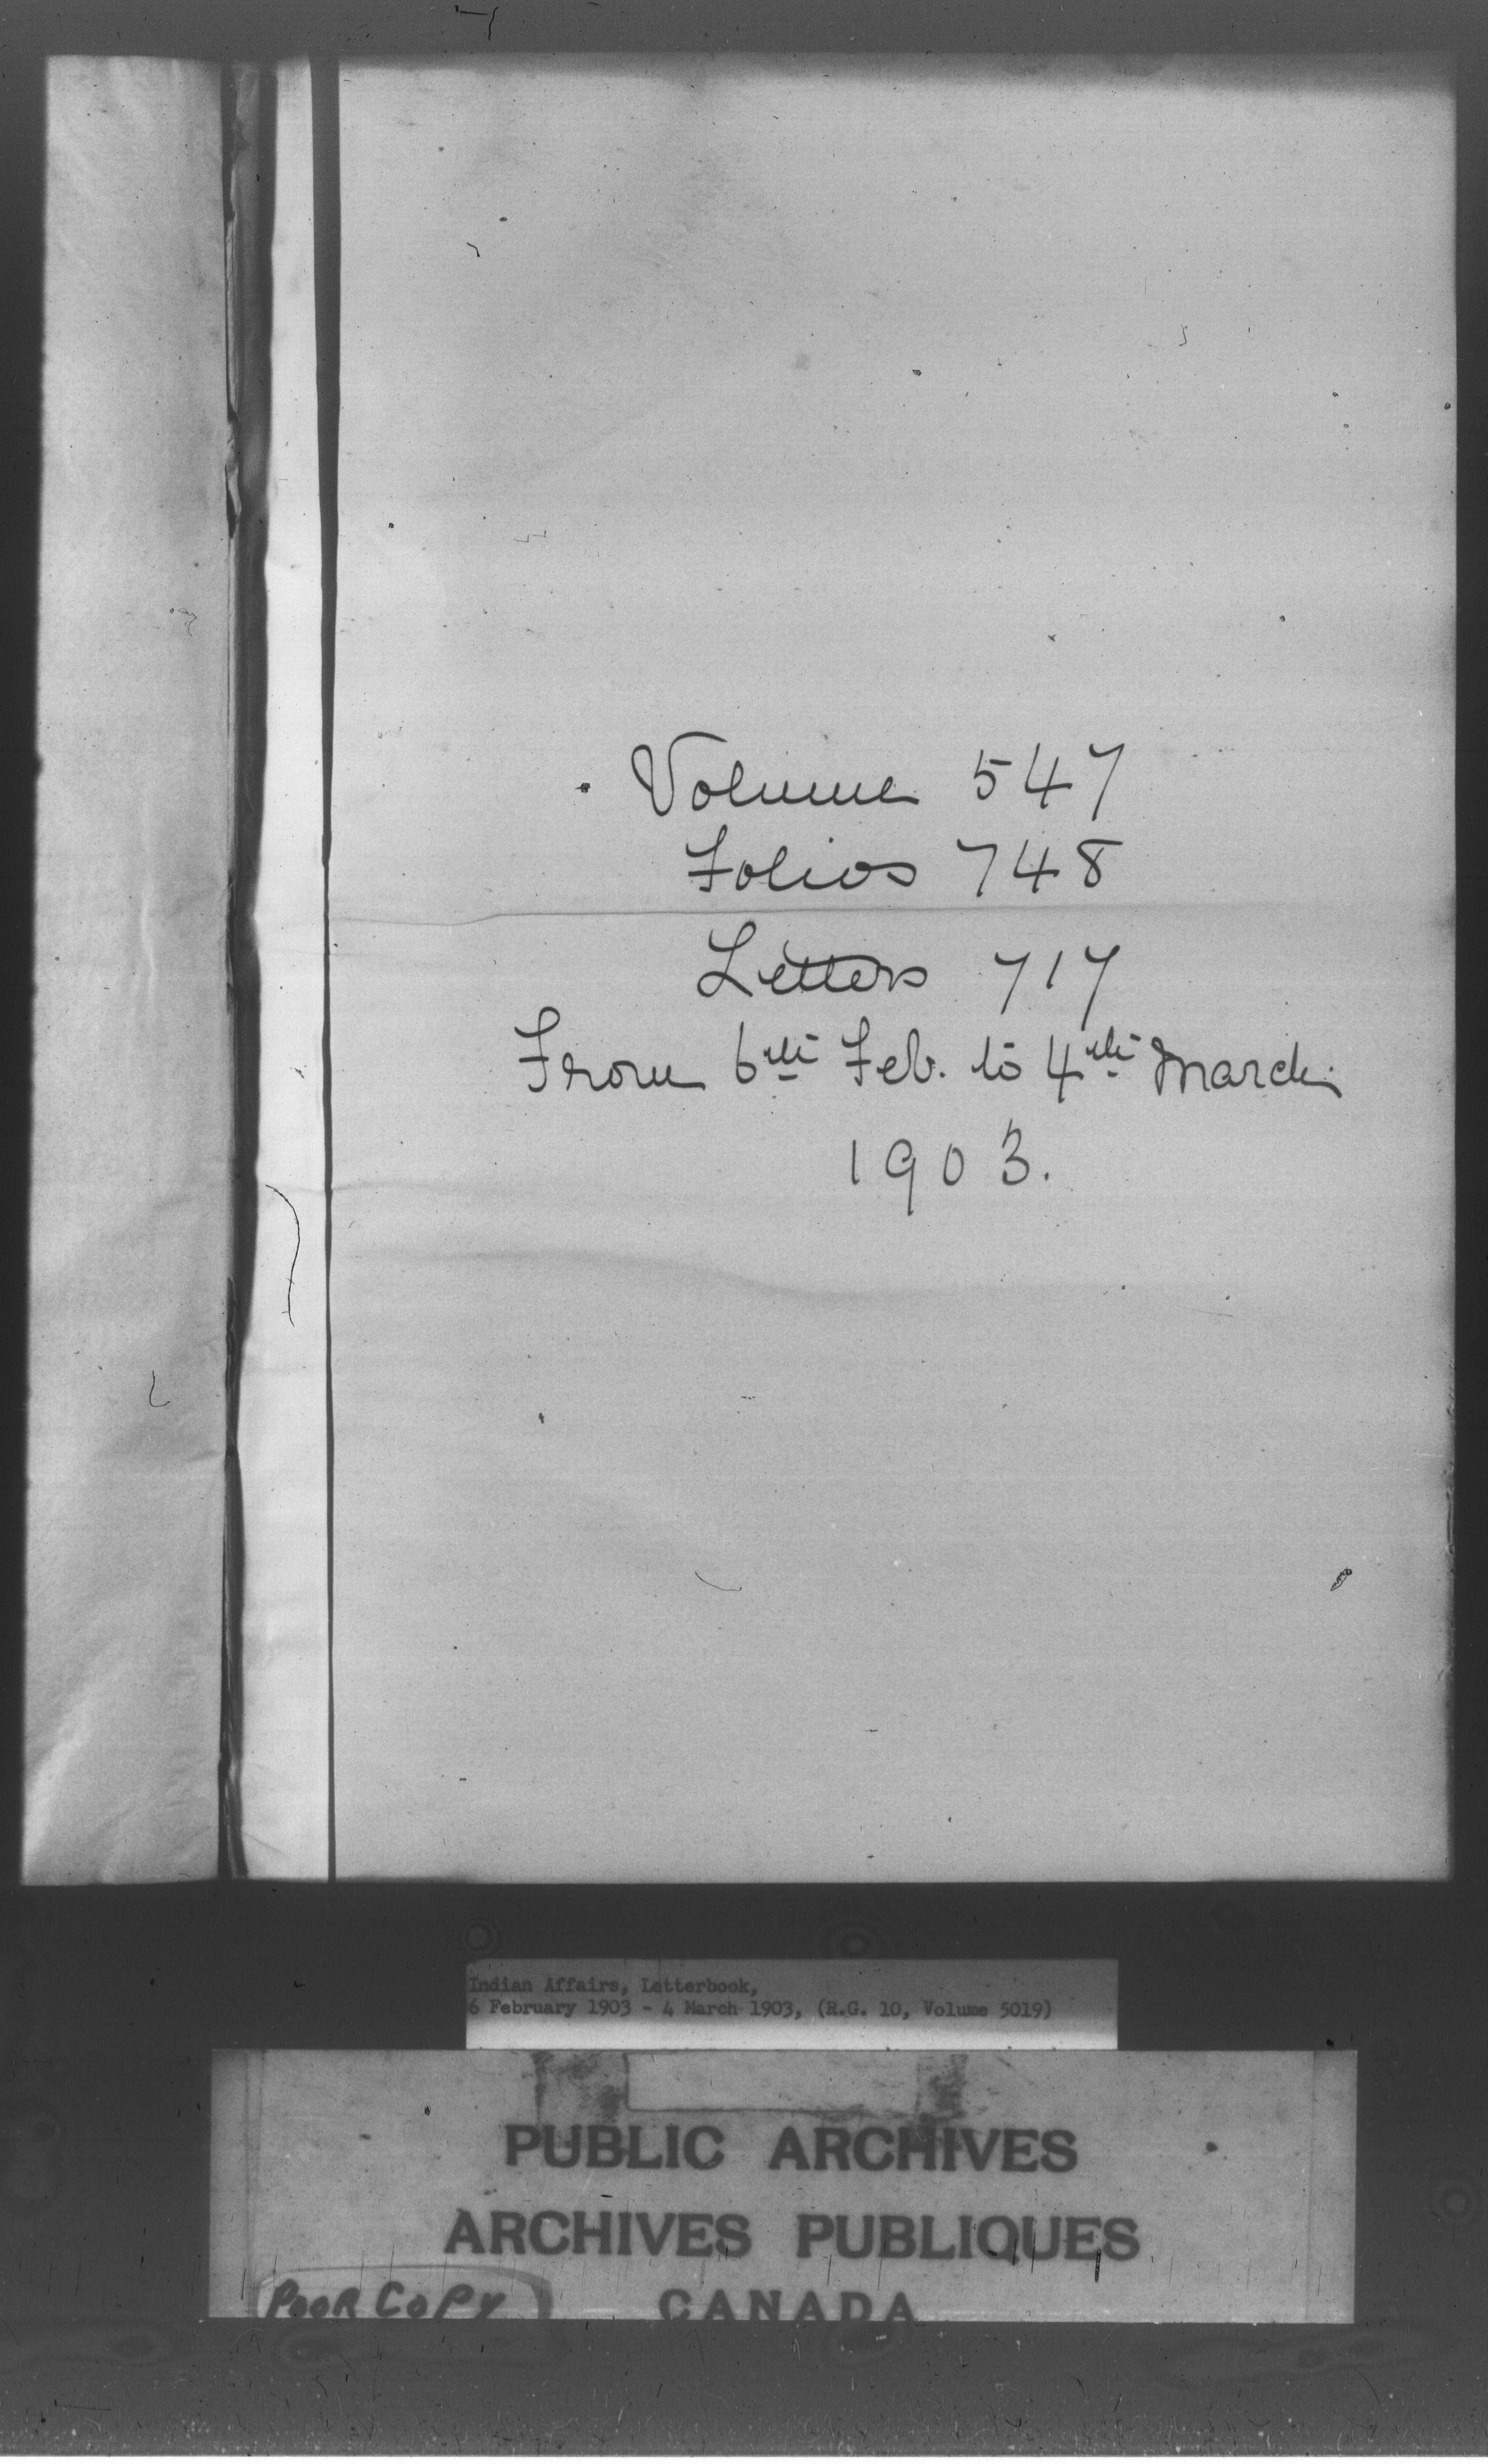 Volume 547
Folios 748
Letters 717
From 6th Feb. to 4th March
1903.
Indian Affairs, Letterbook,
6 February 1903 - 4 March 1903, (R.G. 10, Volume 5019)
PUBLIC ARCHIVES
ARCHIVES PUBLIQUES
POOR COPY CANADA